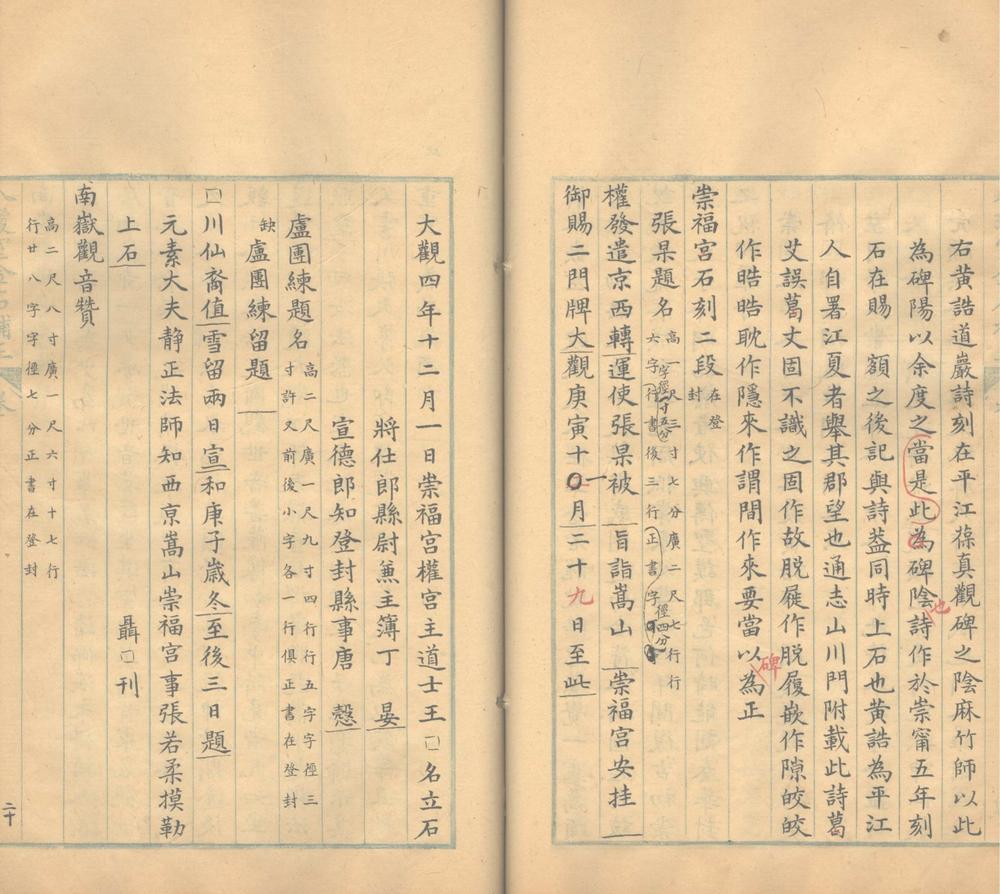 右黄誥道巖詩刻在平江葆真觀碑之陰麻竹師以此
為碑陽以余度之當是此為碑陰也詩作於崇甯五年刻
石在賜額之後記與詩葢同時上石也黄誥為平江
人自署江夏者舉其郡望也通志山川門附載此詩葛
艾誤葛丈固不識之固作故脱屣作脱履嵌作隙皎皎
作皓皓耽作隱來作謂間作來要當以碑為正
崇福宫石刻二段在登封
張杲題名高一尺三寸七分廣二尺七行行六字字徑寸五分行書後三行正書字徑四分
權發遣京西轉運使張杲被旨詣嵩山崇福宫安挂
御賜二門牌大觀庚寅十一月二十九日至此
大觀四年十二月一日崇福宫權宫主道士王□名立石
將仕郎縣尉兼主簿丁晏
宣德郎知登封縣事唐慤
盧團練題名高二尺廣一尺九寸四行行五字字徑三寸許又前後小字各一行俱正書在登封
缺盧團練留題
□川仙裔值雪留兩日宣和庚子歲冬至後三日題
元素大夫静正法師知西京嵩山崇福宫事張若柔摸勒
上石 聶□刊
南嶽觀音贊高二尺八寸廣一尺六寸十七行行廿八字字徑七分正書在登封
二十